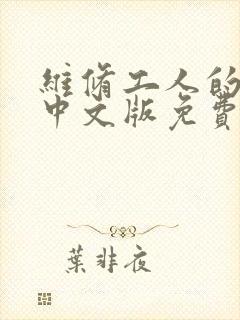 維脩工人的
中文版免費
葉非夜